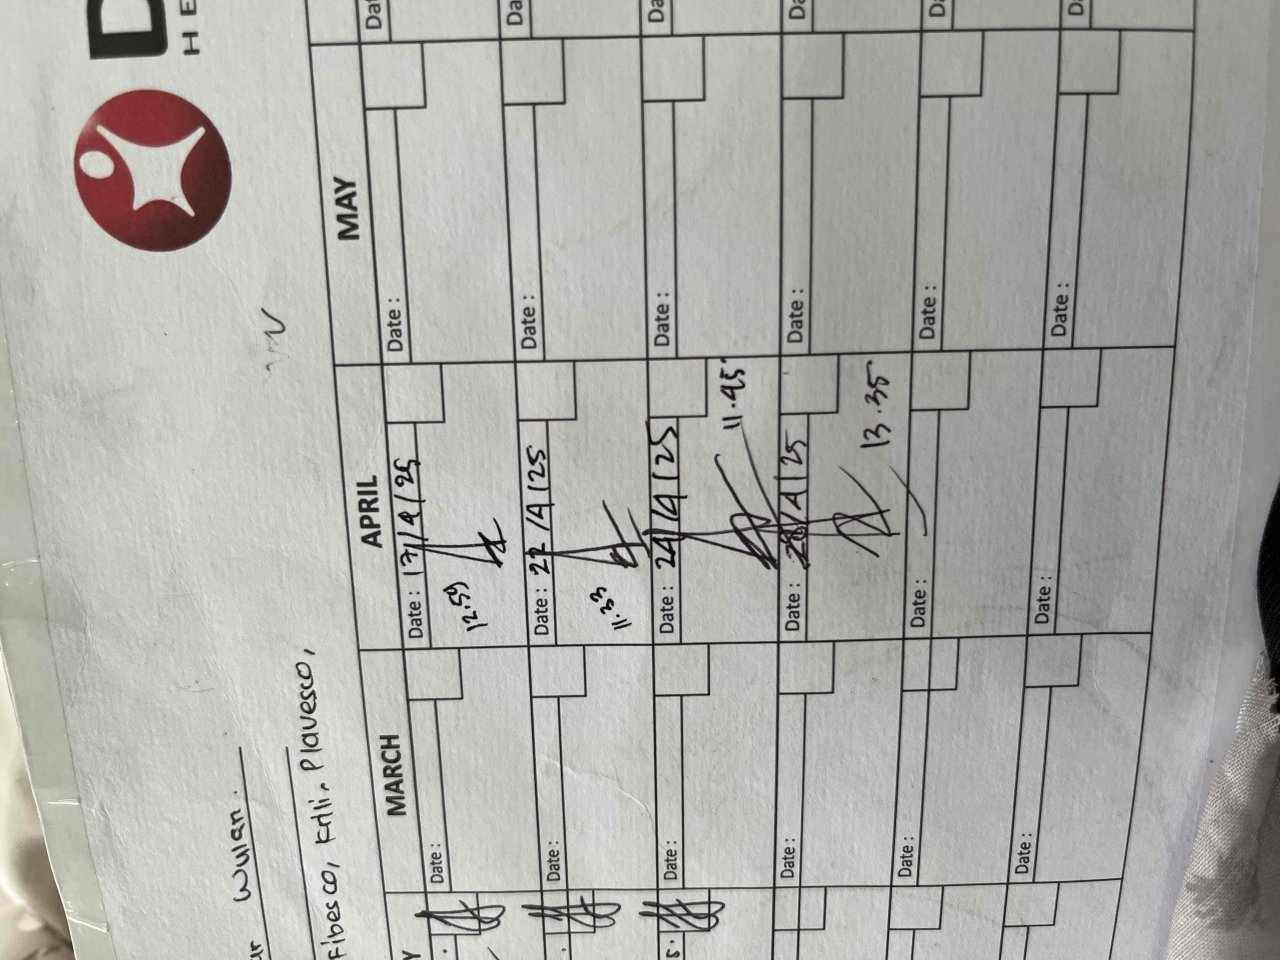 D
HE
ur Wulan.
Fibesco, Erli, Plavesco,
MARCH APRIL MAY
Date : Date : 17/4/25 Date : Dat
12.59
Date : Date : 22/4/25 Date : Da
11.33
Date : Date : 24/4/25 Date : Da
11.45
Date : Date : 28/4/25 Date : Da
13.35
Date : Date : Date : Da
Date : Date : Date : Da